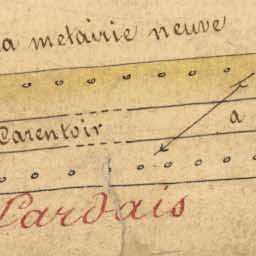 la metairie neuve
Carentoir a
Lardais